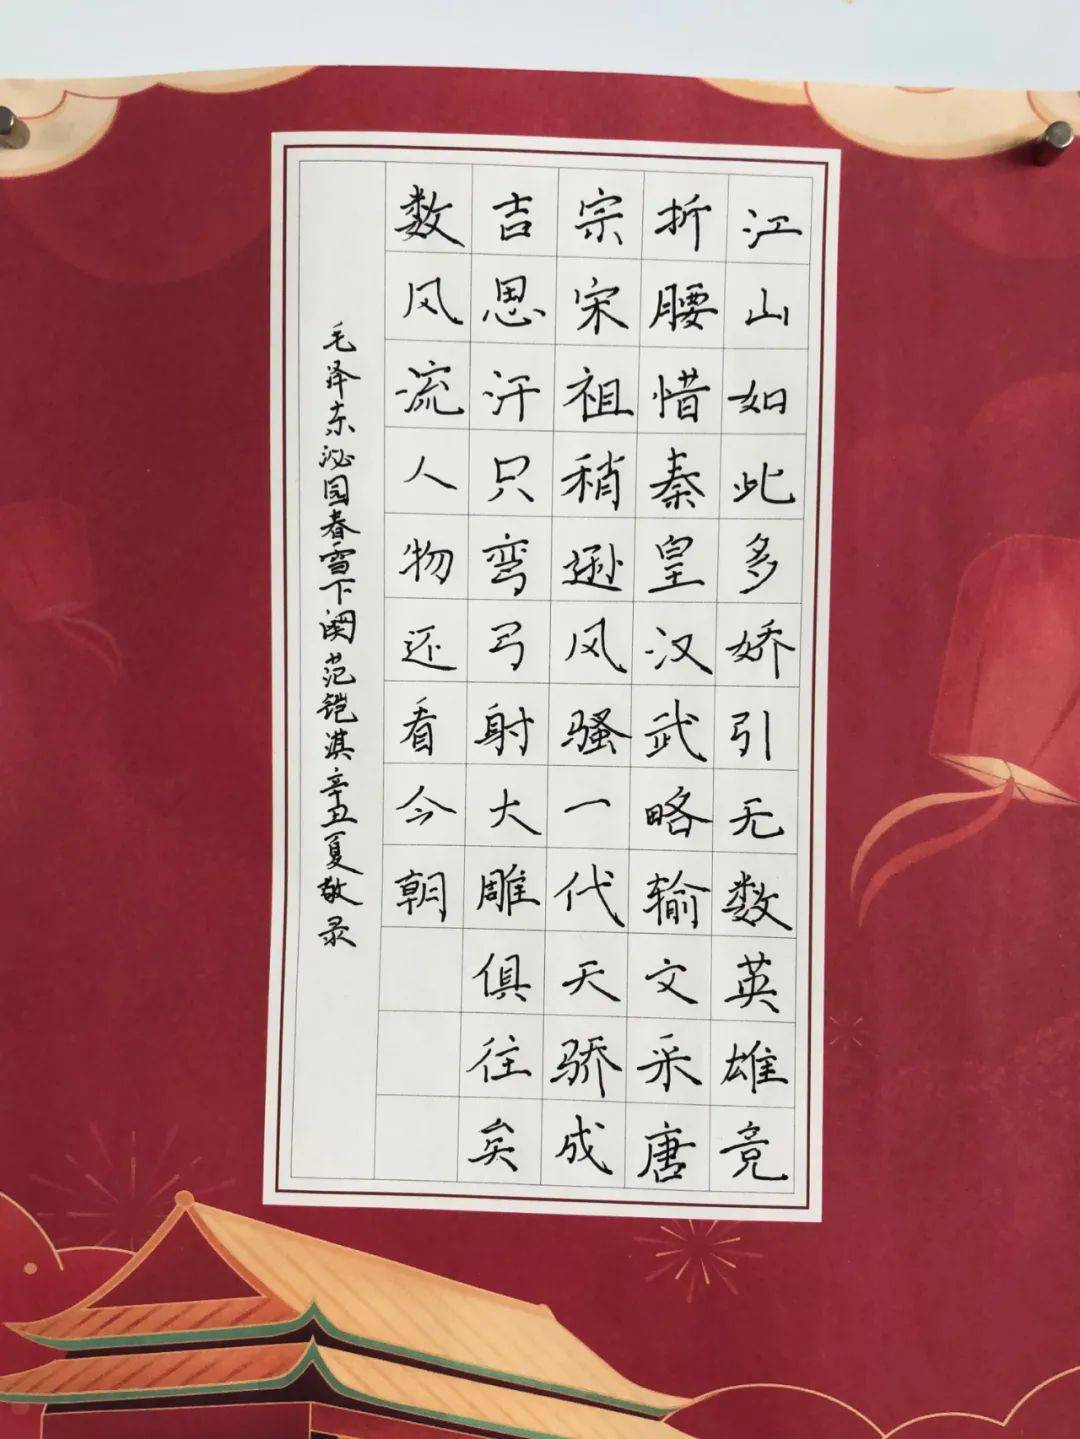 江山如此多娇引无数英雄竞
折腰惜秦皇汉武略输文采唐
宗宋祖稍逊风骚一代天骄成
吉思汗只弯弓射大雕俱往矣
数风流人物还看今朝
毛泽东泌园春雪下阕范铠淇辛丑夏敬录